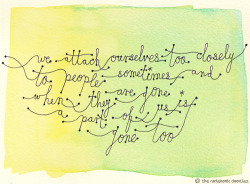 we attach ourselves too closely
to people sometimes and
when they are gone
a part of us is
gone too
© the notebook doodles